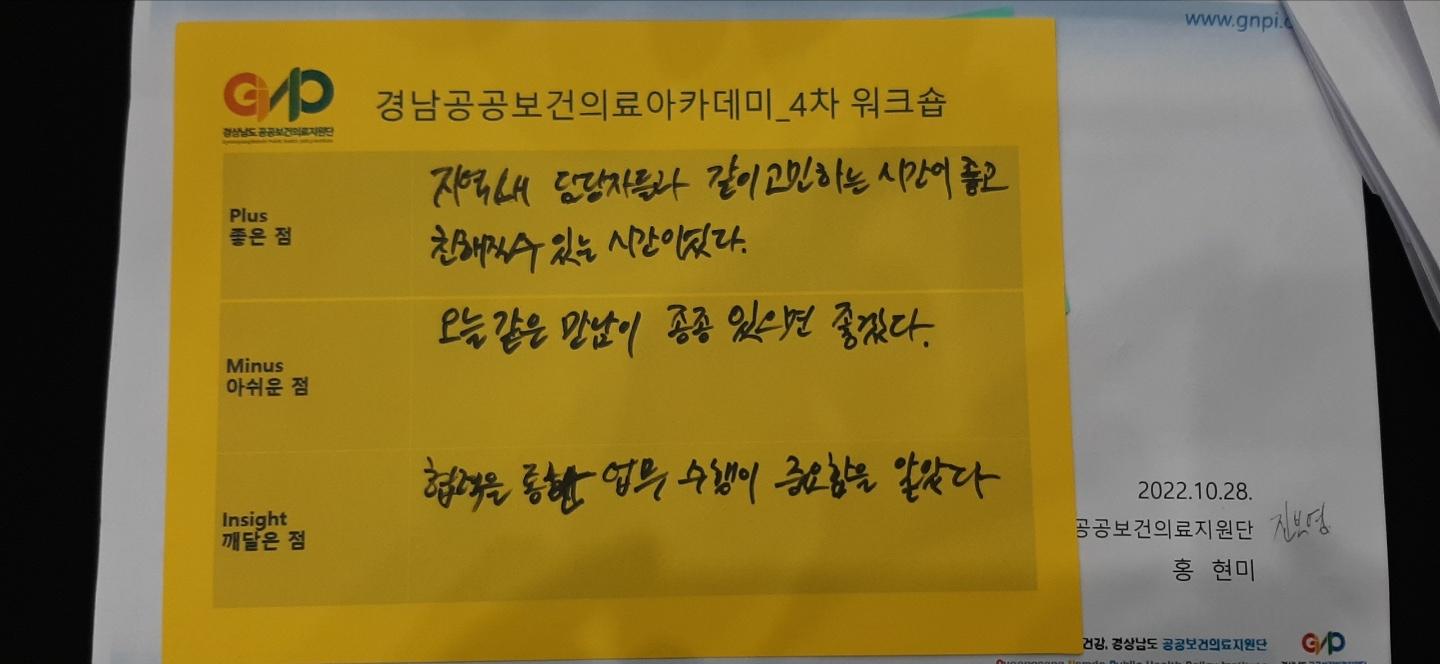 www.gnpi.
GNP
경상남도 공공보건의료지원단
경남공공보건의료아카데미_4차 워크숍
Plus
좋은 점
지역내 담당자들과 같이고민하는 시간이 좋고
친해질수 있는 시간이었다.
Minus
아쉬운 점
오늘 같은 만남이 종종 있으면 좋겠다.
Insight
깨달은 점
협력을 통한 업무 수행이 중요함을 알았다
2022.10.28.
공공보건의료지원단
홍 현미
건강, 경상남도 공공보건의료지원단
GNP